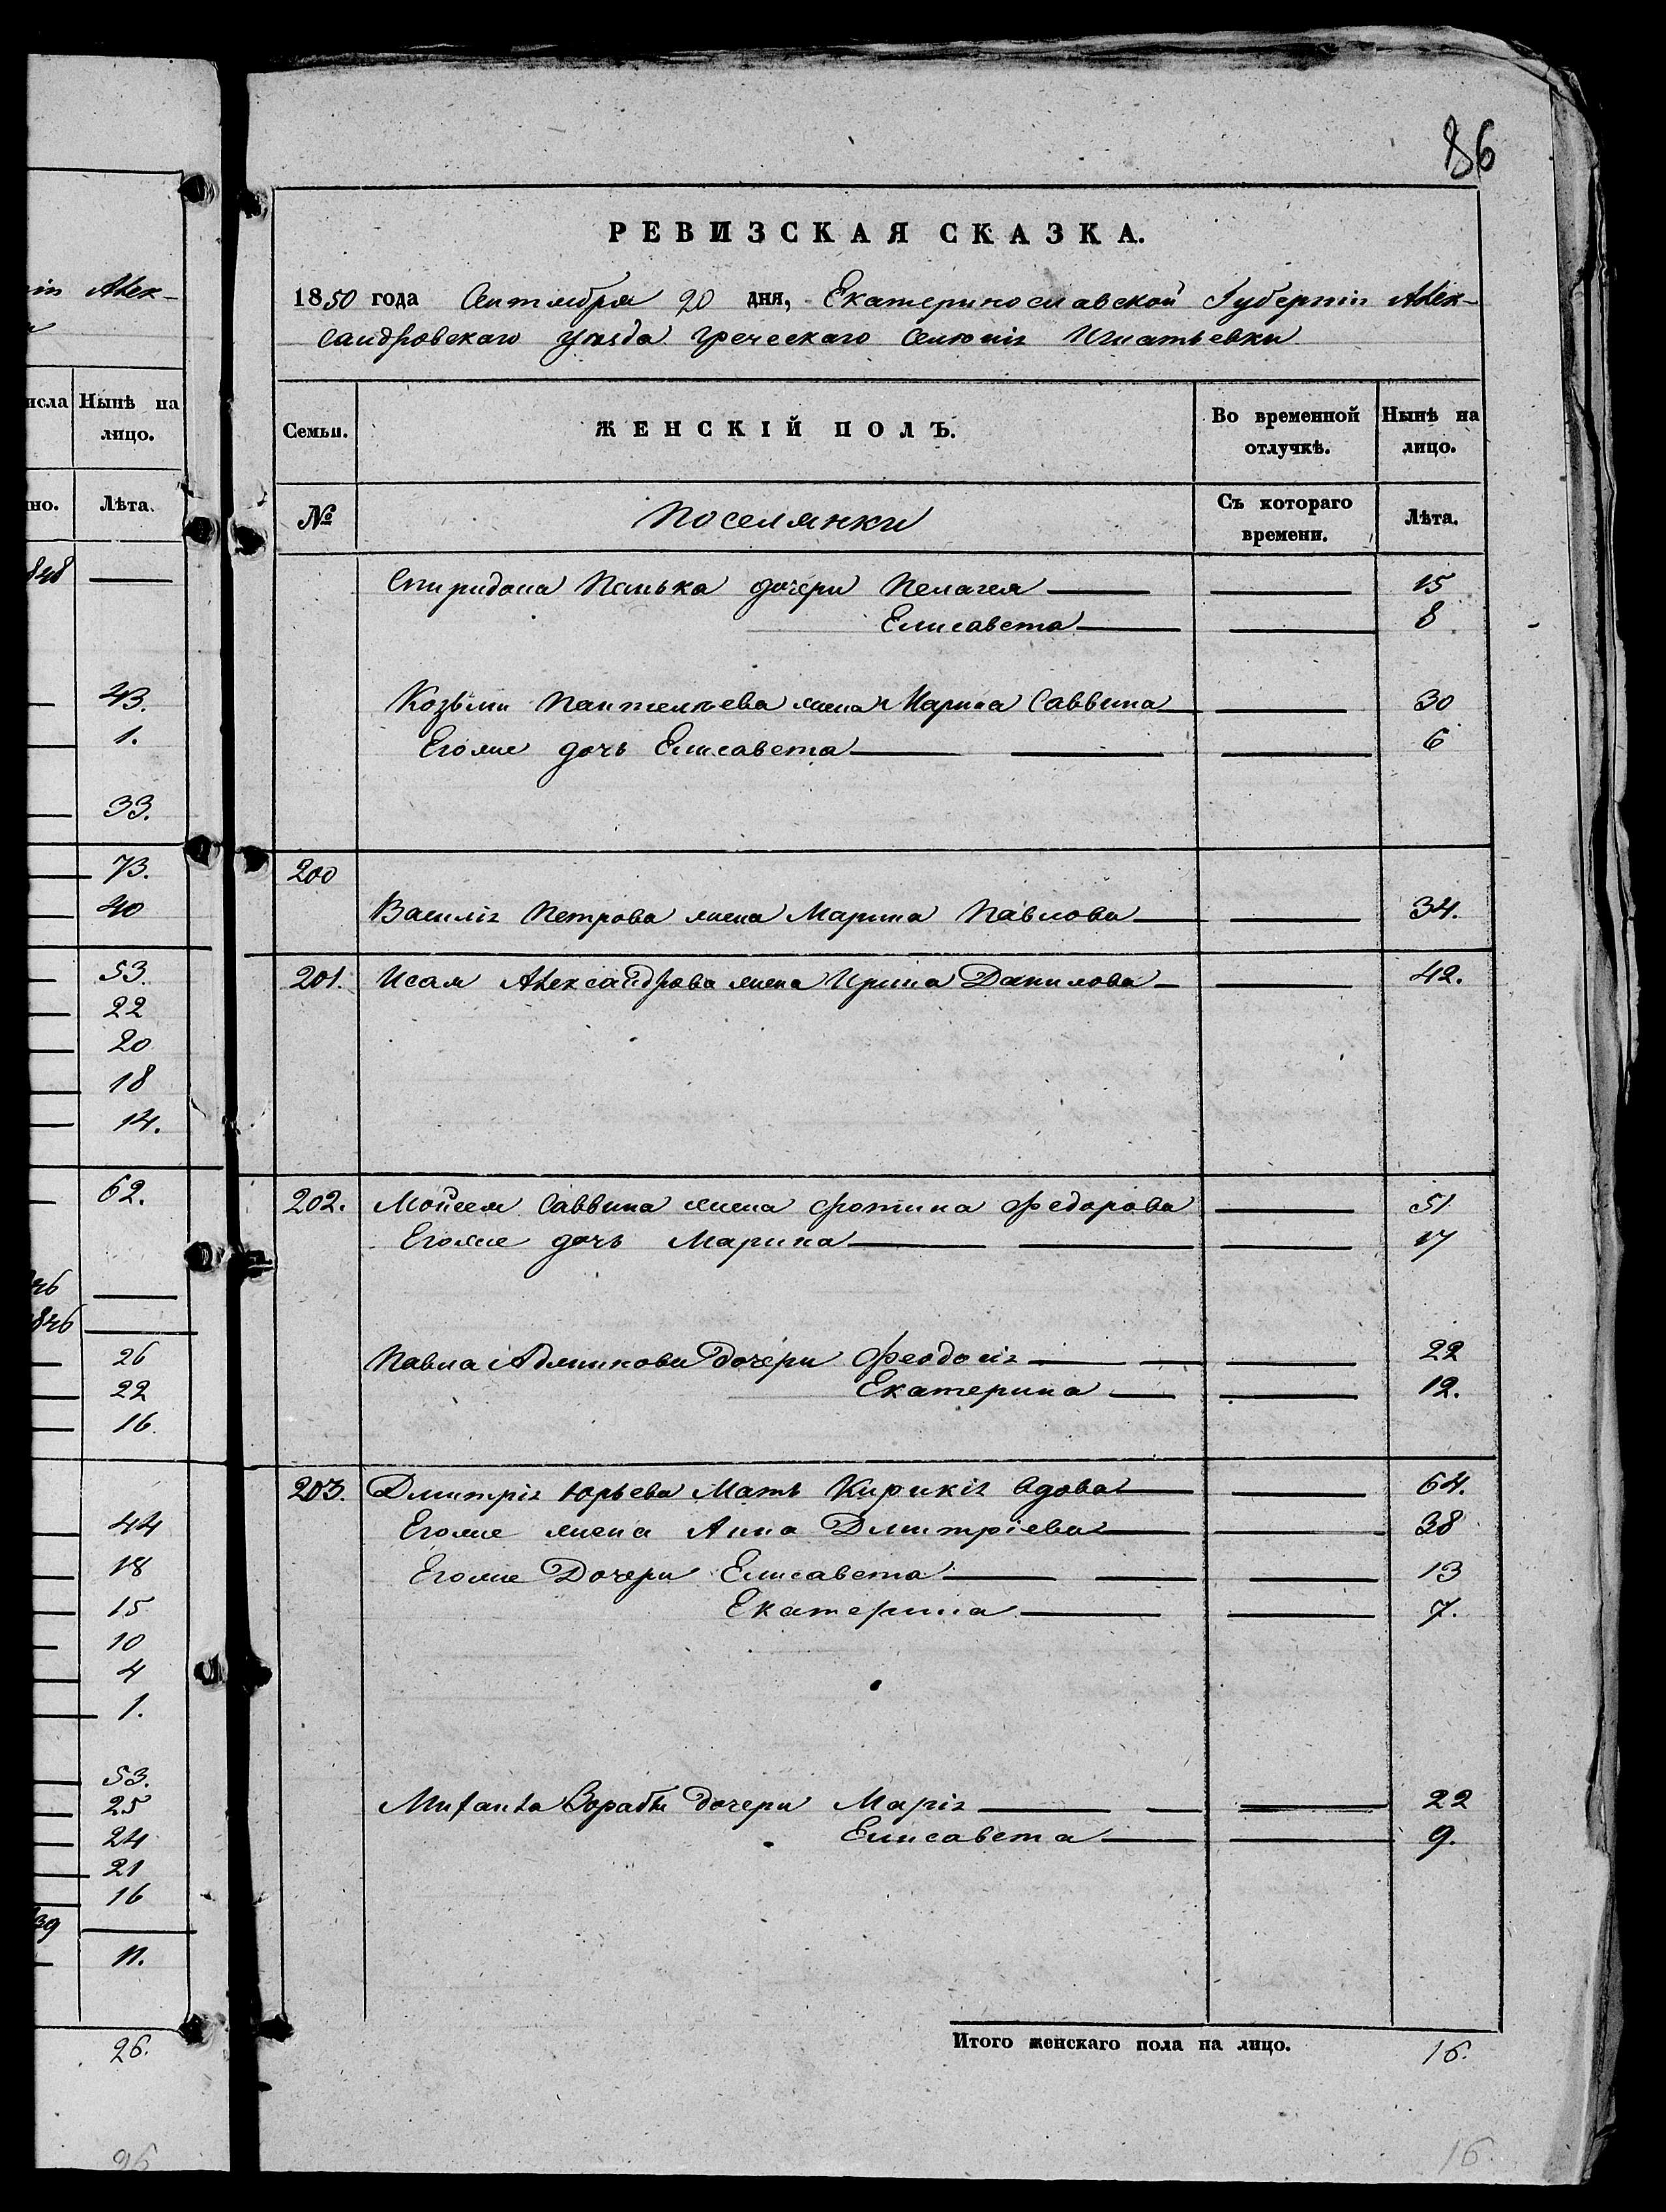 ін Алек-
исла Нынѣ на
лицо.
но. Лѣта.
848
43.
1.
33.
73.
40
53.
22
20
18
14.
62.
846
1846
26
22
16.
44
18
15
10
4
1.
53.
25
24
21
16
39
11.
26.
26
86
РЕВИЗСКАЯ СКАЗКА.
1850 года Сентября 20 дня, Екатеринославской Губерніи Алек-
сандровскаго уѣзда греческаго селенія Игнатьевки
Семьи. ЖЕНСКІЙ ПОЛЪ. Во временной отлучкѣ. Нынѣ на лицо.
№ Поселянки Съ котораго времени. Лѣта.
Спиридона Панька дочери Пелагея 15
Елисавета 8
Козьмы Пантелѣева жена Марина Саввина 30
Егоже дочь Елисавета 6
200
Василія Петрова жена Марина Павлова 34.
201. Исая Александрова жена Ирина Данилова 42.
202. Мойсея Саввина жена Фотина Федорова 51
Егоже дочь Марина 17
Павла дочери Феодосія 22
Екатерина 12.
203. Дмитрія Юрьева Мать Кирикія вдова 64.
Егоже жена Анна Дмитріева 38
Егоже Дочери Елисавета 13
Екатерина 7.
дочери Марія 22
Елисавета 9.
Итого женскаго пола на лицо. 16.
16.